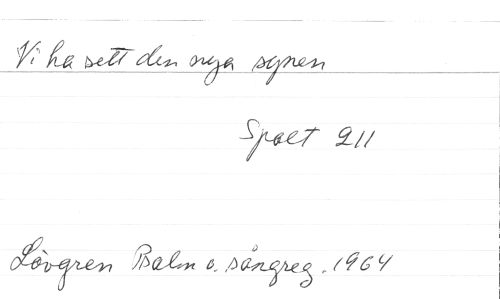 Vi ha sett den nya synen
Spalt 211
Lövgren Psalm o. sångreg. 1964